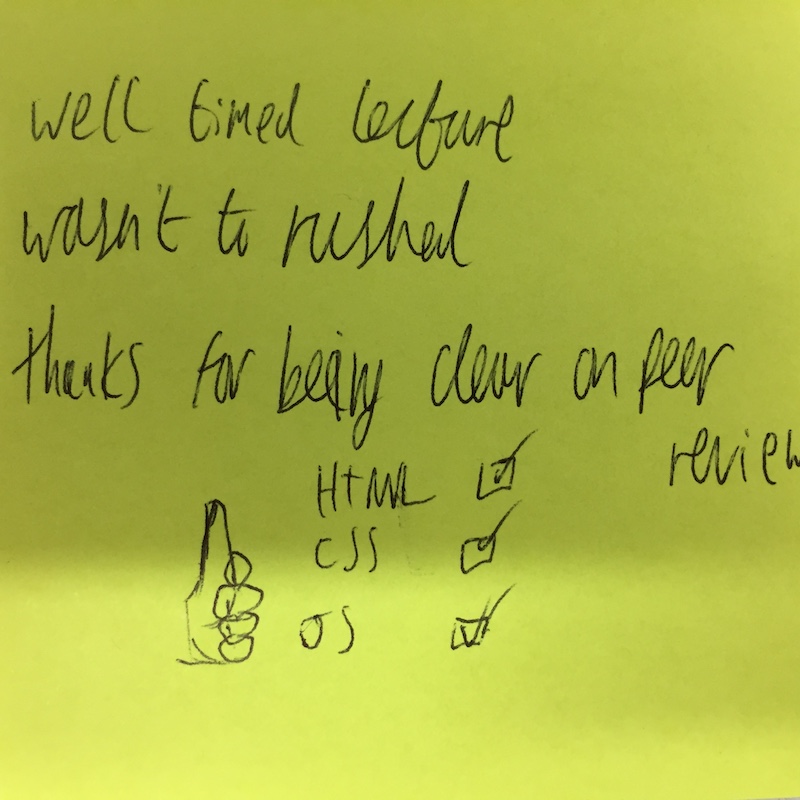 well timed lecture
wasn't to rushed
thanks for being clear on peer
review
HTML ☑
CSS ☑
JS ☑